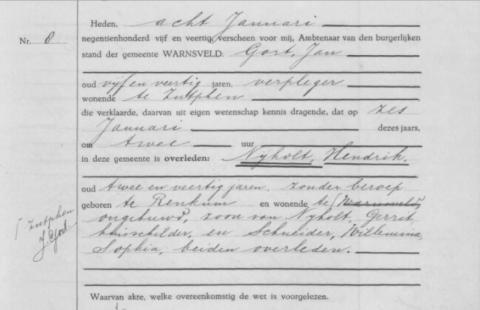 Nr. 8
Heden, acht Januari
negentienhonderd vijf en veertig, verscheen voor mij, Ambtenaar van den burgerlijken
stand der gemeente WARNSVELD: Gort, Jan
oud vyf en veertig jaren, verpleger
wonende te Zutphen
die verklaarde, daarvan uit eigen wetenschap kennis dragende, dat op zes
Januari dezes jaars,
om twee uur
in deze gemeente is overleden: Nyholt, Hendrik,
oud twee en veertig jaren, zonder beroep
geboren te Renkum en wonende te Warnsveld,
ongehuwd, zoon van Nyholt, Gerrit,
huisschilder, en Schneider, Willemina
Sophia, beiden overleden.
Zutphen
J. Gort
Waarvan akte, welke overeenkomstig de wet is voorgelezen.